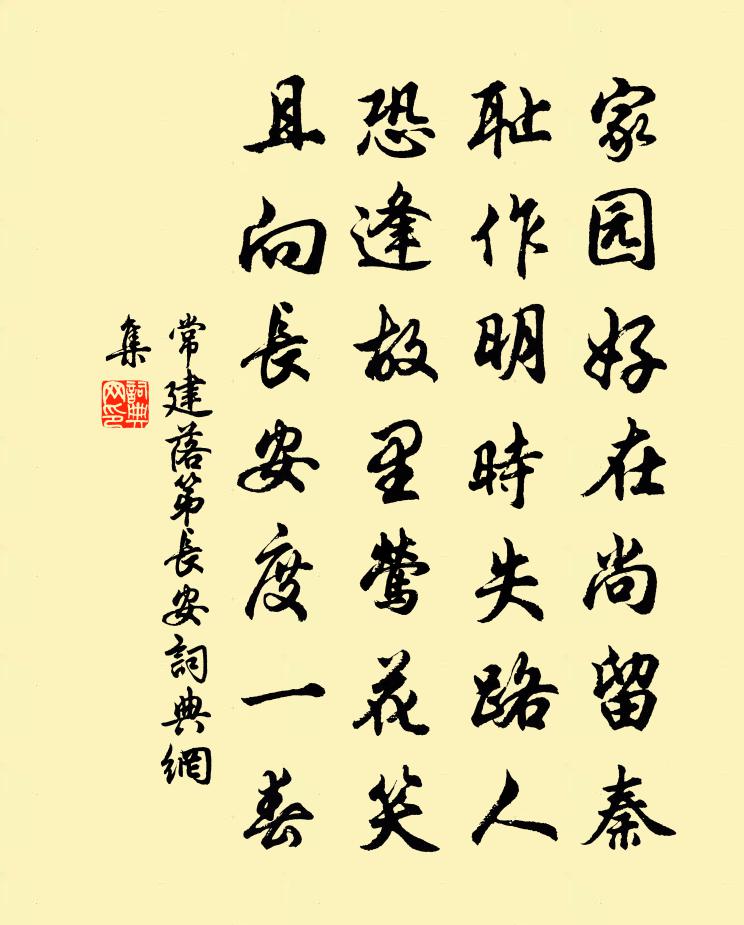 家园好在尚留秦
耻作明時失路人
恐逢故里莺花笑
且向長安度一春
常建落第長安詞典網
集
詞典
网印